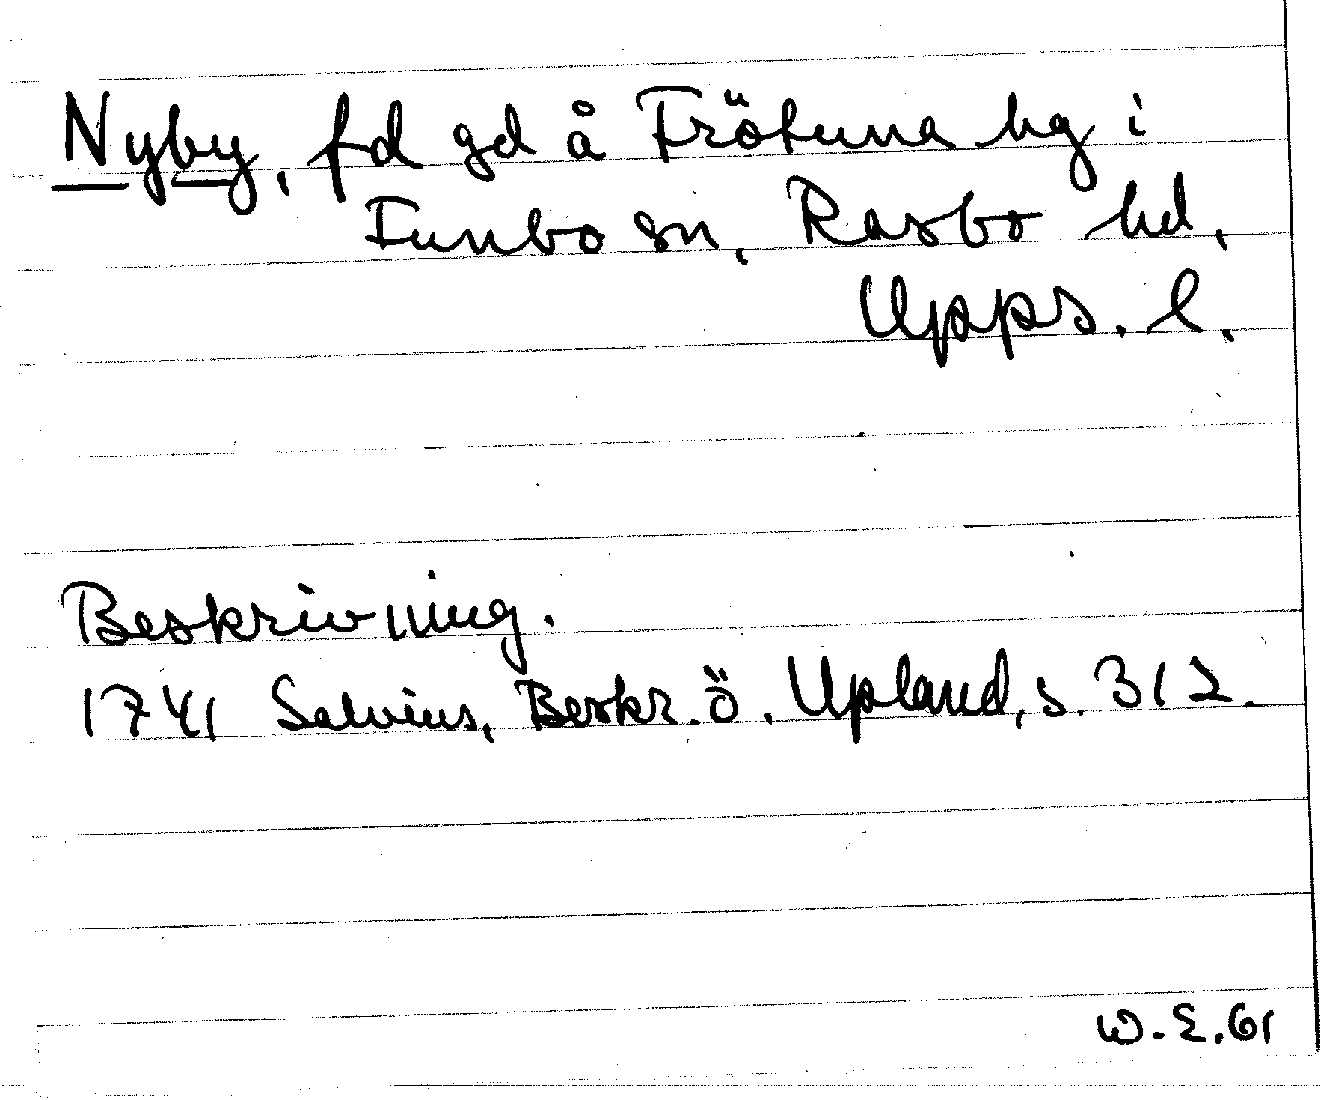 Nyby, fd gd å Frötuna hg i
Funbo sn, Rasbo hd,
Upps. l.
Beskrivning.
1741 Salvius, Beskr. ö. Upland, s. 312.
W.E.61